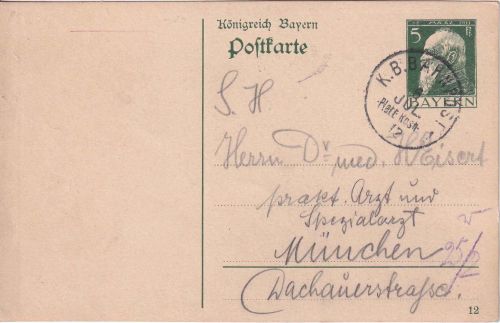 Königreich Bayern
Postkarte
5 Pf
BAYERN
K.B.BAHNPOST
JUL.
12
S. H
Herrn Dr med. H Eisert
prakt. Arzt und
Spezialarzt
München
Dachauerstraße.
25/2
12